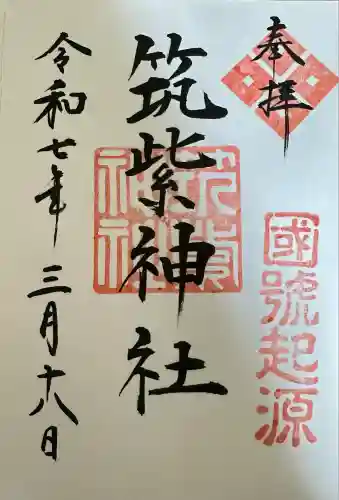 奉拝
國號起源
筑紫神社
筑紫神社
令和七年三月十八日